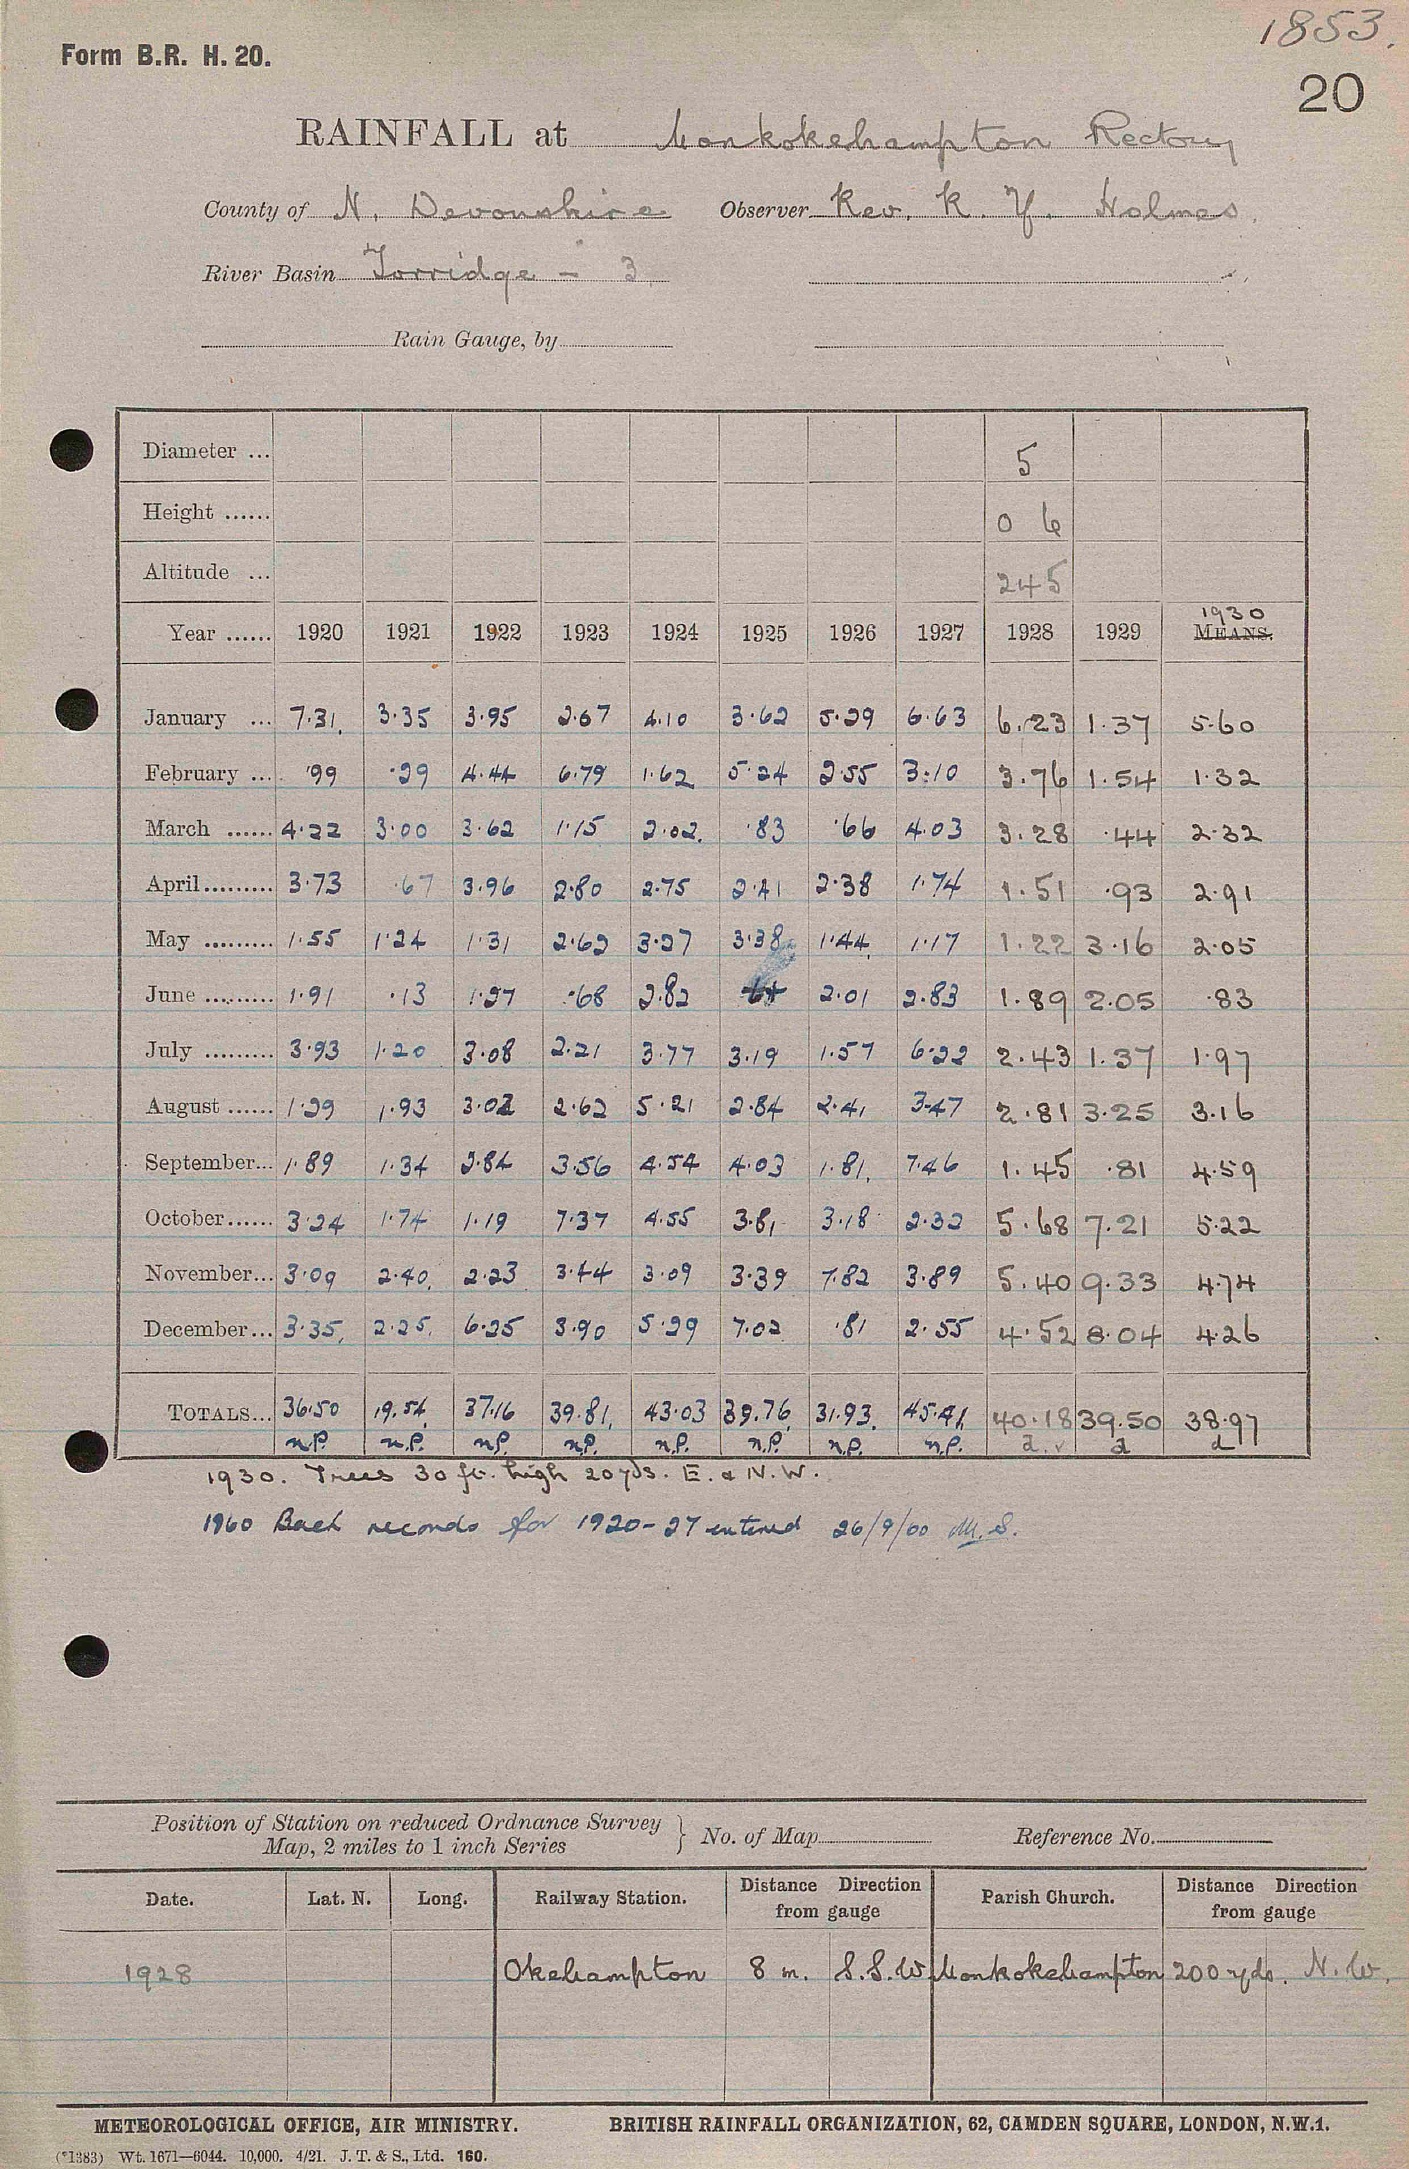 1853.
Form B.R. H. 20.
20
RAINFALL at Monkokehampton Rectory
County of N. Devonshire Observer Rev. K. Y. Holmes.
River Basin Torridge - 3
Rain Gauge, by
Diameter ... 5
Height ...... 0 6
Altitude ... 245
1930
Year ...... 1920 1921 1922 1923 1924 1925 1926 1927 1928 1929 MEANS.
January ... 7.31 3.35 3.95 2.67 4.10 3.62 5.29 6.63 6.23 1.37 5.60
February ... .99 .29 4.44 6.79 1.62 5.24 2.55 3.10 3.76 1.54 1.32
March ...... 4.22 3.00 3.62 1.15 2.02 .83 .66 4.03 3.28 .44 2.32
April ......... 3.73 .67 3.96 2.80 2.75 2.41 2.38 1.74 1.51 .93 2.91
May ......... 1.55 1.24 1.31 2.62 3.27 3.38 1.44 1.17 1.22 3.16 2.05
June ......... 1.91 .13 1.27 .68 2.82 2.01 2.83 1.89 2.05 .83
July ......... 3.93 1.20 3.08 2.21 3.77 3.19 1.57 6.22 2.43 1.37 1.97
August ...... 1.29 1.93 3.02 2.62 5.21 2.84 2.41 3.47 2.81 3.25 3.16
September... 1.89 1.34 2.84 3.56 4.54 4.03 1.81 7.46 1.45 .81 4.59
October...... 3.24 1.74 1.19 7.37 4.55 3.81 3.18 2.32 5.68 7.21 5.22
November... 3.09 2.40 2.23 3.44 3.09 3.39 7.82 3.89 5.40 9.33 4.74
December... 3.35 2.25 6.25 3.90 5.29 7.02 .81 2.55 4.52 8.04 4.26
TOTALS... 36.50 19.54 37.16 39.81 43.03 39.76 31.93 45.41 40.18 39.50 38.97
n.P. n.P. n.P. n.P. n.P. n.P. n.P. n.P. a. v a a
1930. Trees 30 ft. high 20 yds. E. & N.W.
1960 Back records for 1920-27 entered 26/9/60 M.S.
Position of Station on reduced Ordnance Survey
Map, 2 miles to 1 inch Series } No. of Map Reference No.
Date. Lat. N. Long. Railway Station. Distance Direction from gauge Parish Church. Distance Direction from gauge
1928 Okehampton 8 m. S.S.W Monkokehampton 200 yds. N.W.
METEOROLOGICAL OFFICE, AIR MINISTRY. BRITISH RAINFALL ORGANIZATION, 62, CAMDEN SQUARE, LONDON, N.W.1.
(*1383) Wt. 1671—6044. 10,000. 4/21. J. T. & S., Ltd. 160.